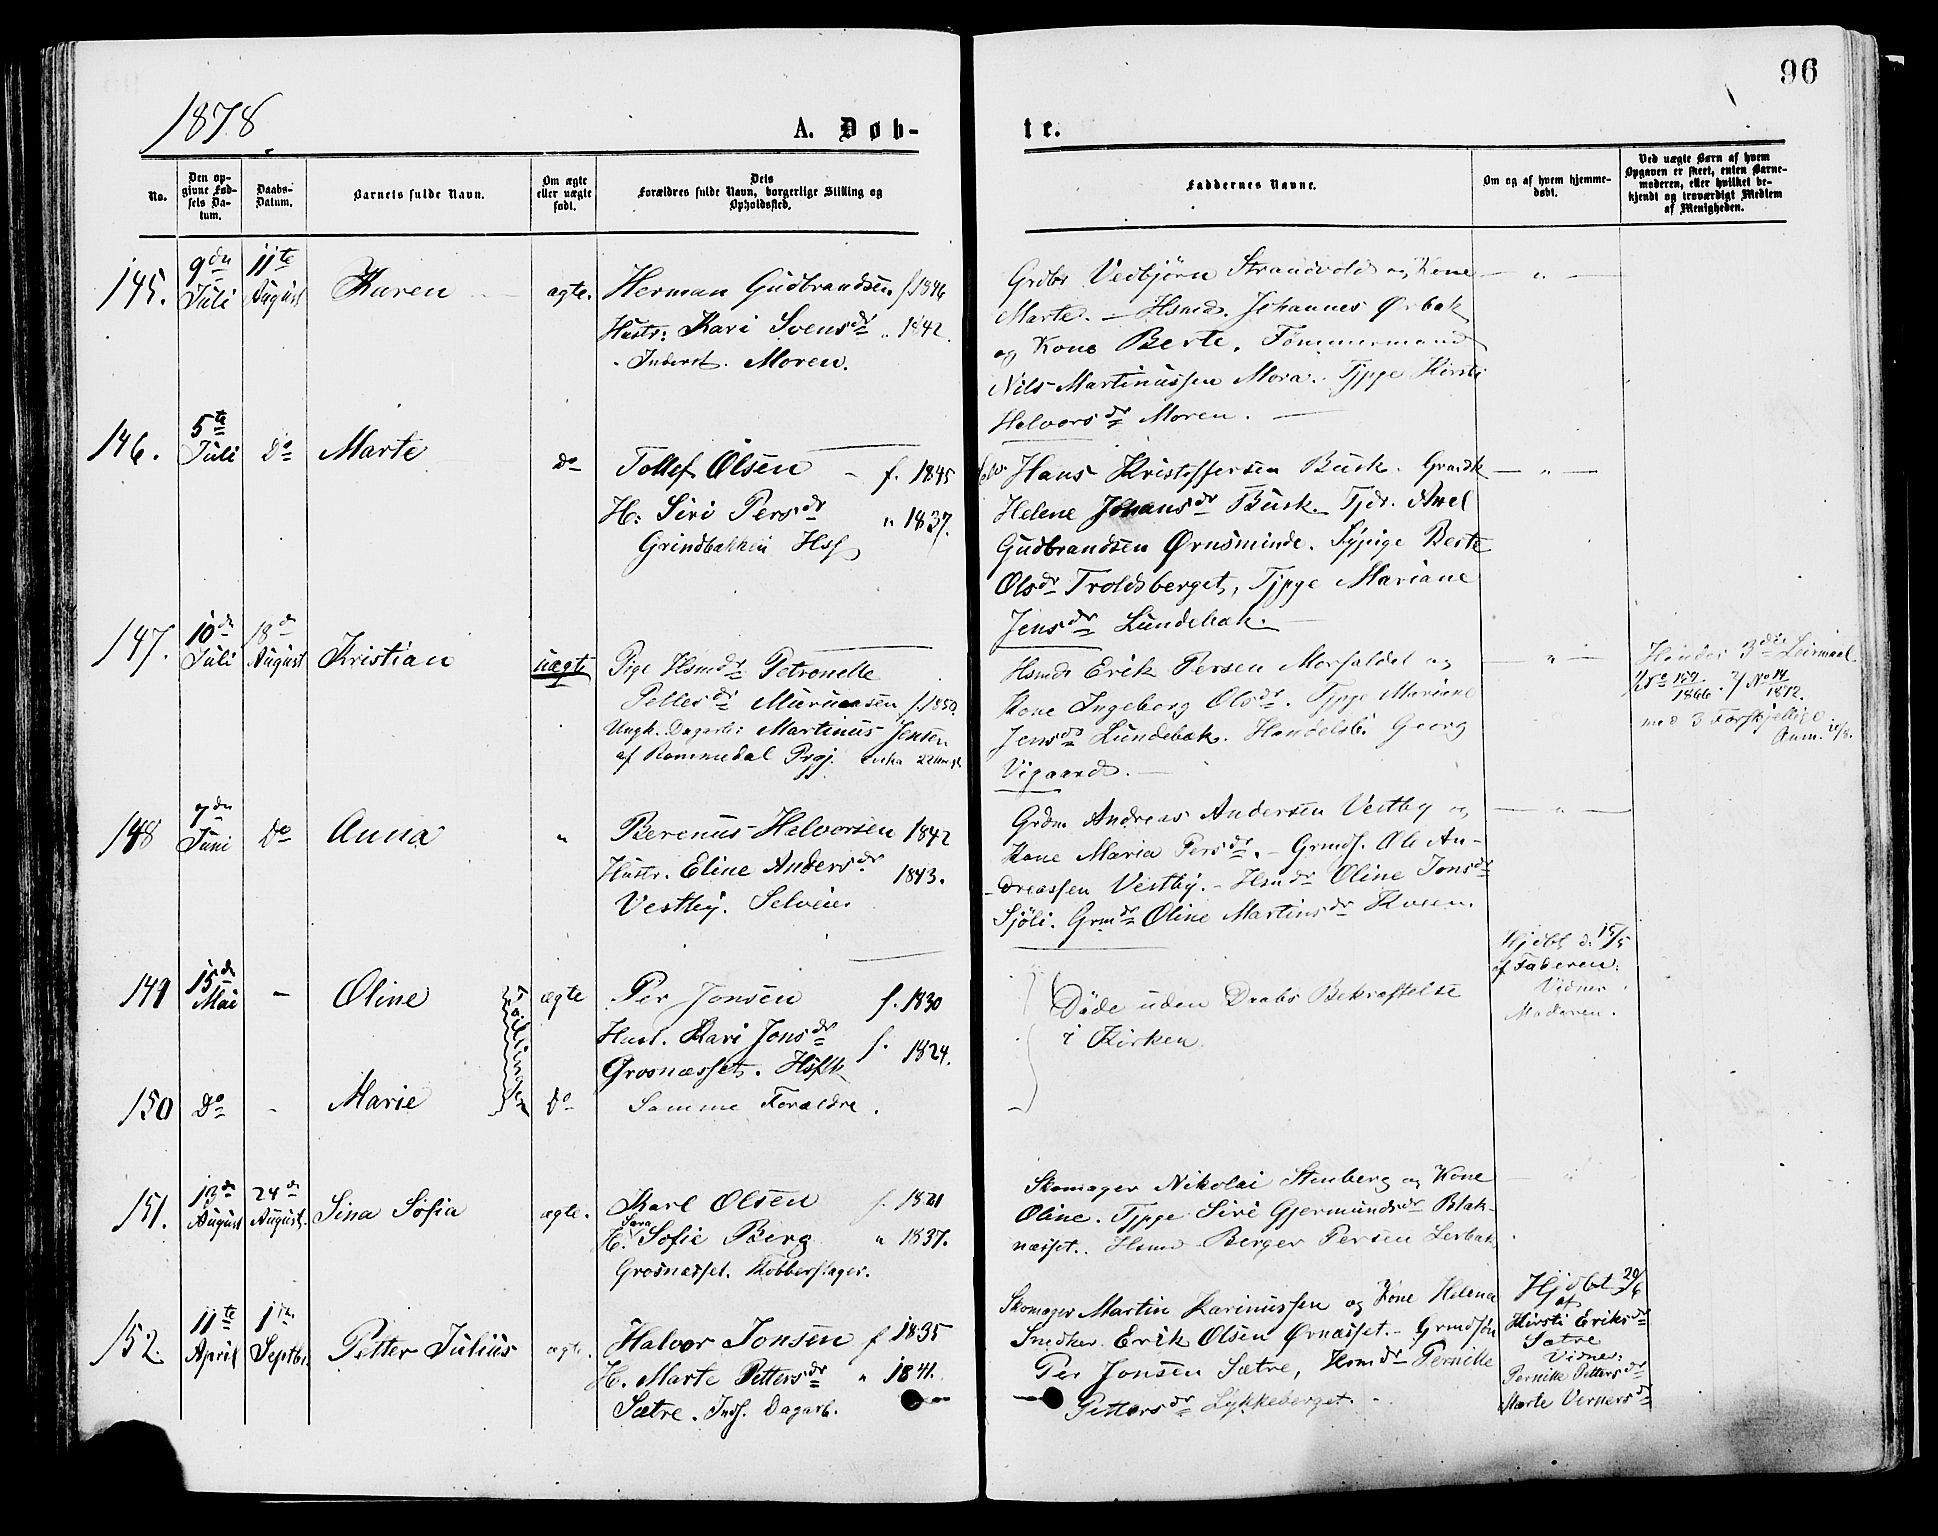 96
1878.
A. Døb-
te.
No.
Den op-
givne Fød-
sels Da-
tum.
Daabs-
Datum.
Barnets fulde Navn.
Om ægte
eller uægte
født.
Dets
Forældres fulde Navn, borgerlige Stilling og
Opholdssted.
Faddernes Navne.
Om og af hvem hjemme-
døbt.
Ved uægte Børn af hvem
Opgaven er skeet, enten Barne-
moderen, eller hvilket be-
kjendt og troværdigt Medlem
af Menigheden.
145.
9de
Juli
11te
August
Karen
ægte.
Herman Gudbrandsen f. 1846
Hustr: Kari Svensdr " 1842.
Inderst. Moren.
Grdbr Vedbjørn Strandvold og Kone
Marte. — Hsmd. Johannes Ørbæk
og Kone Berte. Tømmermand
Nils Martinussen Mora. Tjpge Kirsti
Halvorsdr Moren. —
— " —
146.
5te
Juli
Do
Marte
Do
Tollef Olsen - f. 1845
H: Siri Persdr " 1837.
Grindbakken Hsf
Hans Kristoffersen Busk. Grmdk
Helene Johansdr Busk. Tjdr. Axel
Gudbrandsen Ørnsminde. Typige Berte
Olsdr Troldsberget, Tjpge Mariane
Jensdr Lundebæk. —
— " —
147.
10de
Juli
18de
August
Kristian
uægte
Pige Hsmdr Petronelle
Pellesdr Muruaasen f. 1850.
Ungk. Dagarb: Martinus Jensen
af Rommedal Prgj. cirka 22 Aar gl.
Hsmd Erik Persen Morfaldet og
Kone Ingeborg Olsdr. Tjpge Mariane
Jensdr Lundebæk. Handelsb: Georg
Vigaard. —
— " —
Hendes 3die Leiermaal
1/ No 157/1866. 2/ No 14/1872.
med 3 Forskjellige
148
7de
Juni
Do
Anna
"
Berenus Halvorsen 1842
Hustr. Eline Andersdr 1843.
Vestby. Selveier
Grdm Andreas Andersen Vestby og
Kone Maria Persdr. — Grmds. Ole An-
-dreassen Vestby. — Hsmdr Oline Jonsdr
Sjøli. Grmdr Oline Martinsdr Kosen.
— " —
149
15de
Mai
-
Oline
Tvillinger
ægte
Per Jonsen f. 1830
Hust. Kari Jonsdr f. 1824.
Grosnæsset. Hsfk
Døde uden Daabs Bekræftelse
i Kirken.
Hjdbt d. 15/5
af Faderen.
Vidner
Moderen.
150
Do
-
Marie
Do
Samme Forældre.
151.
13de
August
24de
August.
Sina Sofia
ægte.
Karl Olsen f. 1821
H. Sara Sofie Berg " 1837.
Grosnæsset. Kobberslager.
Skomager Nikolai Stenberg og Kone
Oline. Tjpge Siri Gjermundsdr Blak-
næsset. Hsmd Berger Persen Lerbæk.
152.
11te
April
1ste
Septbr
Petter Julius
ægte.
Halvor Jonsen f 1835
H. Marte Pettersdr " 1841.
Sætre. Inds. Dagarb.
Skomager Martin Karinussen og Kone Helena
Snedker Erik Olsen Ørnæsset. — Grmdsøn
Per Jonsen Sætre, Hsmdr Pernille
Pettersdr Lykkeberget.
Hjdbt 20/6
af
Kirsti Eriksdr
Sætre
Vidner:
Pernille Pettersdr
Marte Vernersdr